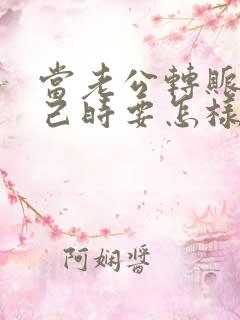 當老公轉賬
己時要怎樣
阿嫻醬